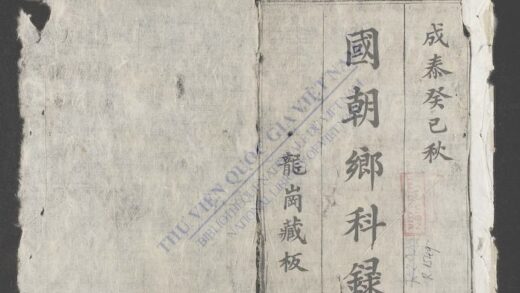 成泰癸巳秋
國朝鄉科録
龍崗藏板
THƯ VIỆN QUỐC GIA VIỆT NAM
BIBLIOTHÈQUE NATIONALE DU VIETNAM
NATIONAL LIBRARY OF VIETNAM
R 1549